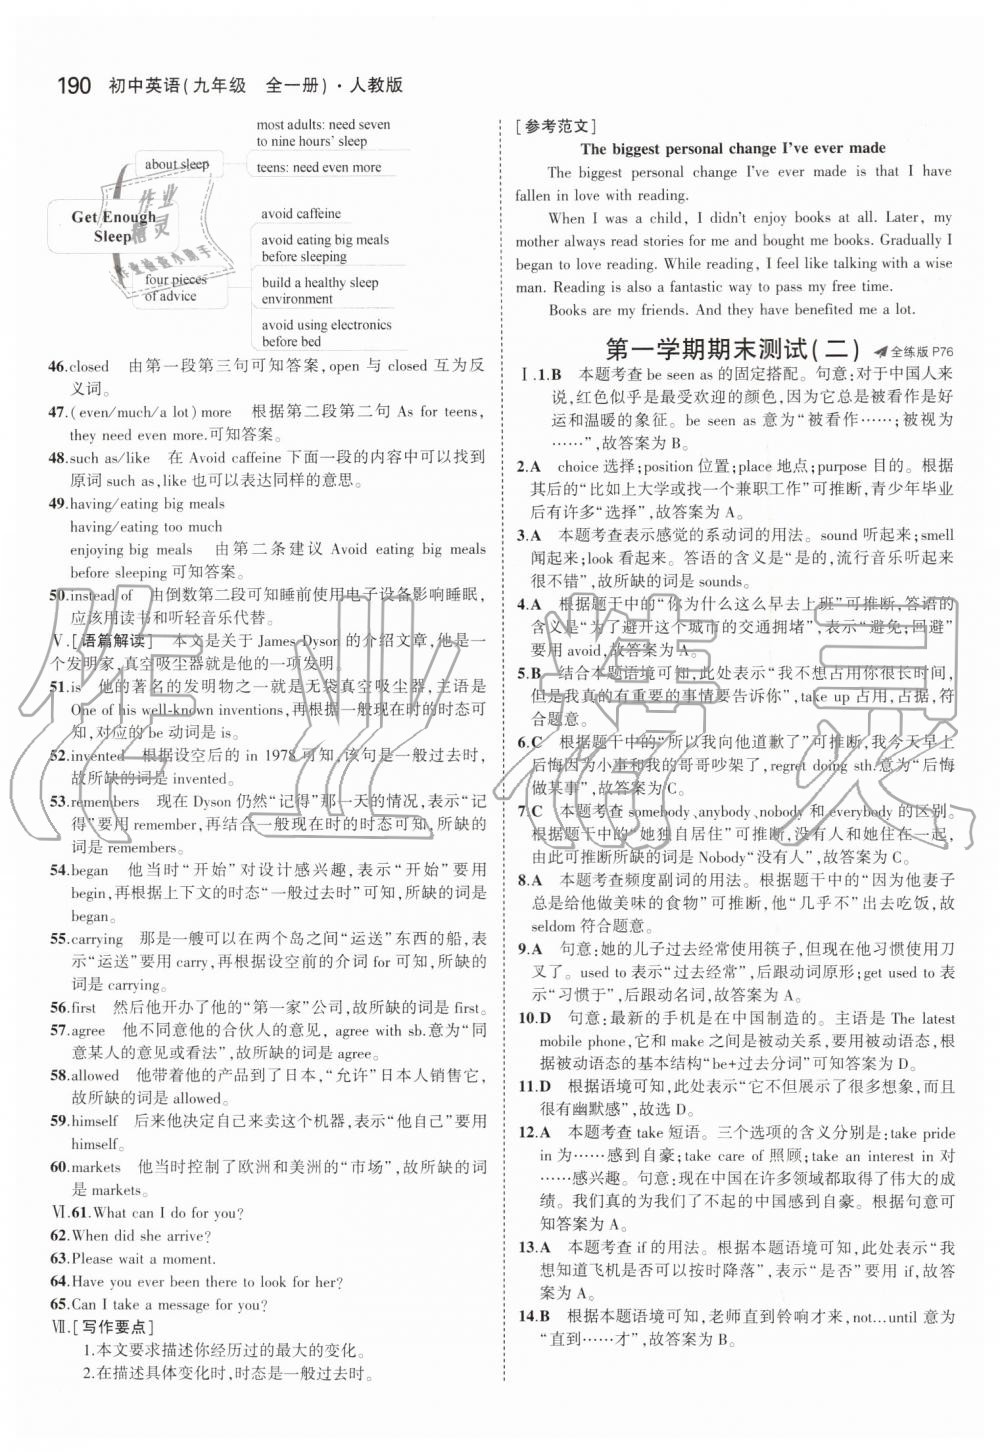 190 初中英语(九年级 全一册)·人教版
most adults: need seven
to nine hours' sleep
about sleep
teens: need even more
Get Enough
Sleep
avoid caffeine
avoid eating big meals
before sleeping
four pieces
of advice
build a healthy sleep
environment
avoid using electronics
before bed
46.closed 由第一段第三句可知答案,open 与 closed 互为反
义词。
47.(even/much/a lot) more 根据第二段第二句 As for teens,
they need even more.可知答案。
48.such as/like 在 Avoid caffeine 下面一段的内容中可以找到
原词 such as,like 也可以表达同样的意思。
49.having/eating big meals
having/eating too much
enjoying big meals 由第二条建议 Avoid eating big meals
before sleeping 可知答案。
50.instead of 由倒数第二段可知睡前使用电子设备影响睡眠,
应该用读书和听轻音乐代替。
Ⅴ.[语篇解读] 本文是关于 James Dyson 的介绍文章,他是一
个发明家,真空吸尘器就是他的一项发明。
51.is 他的著名的发明物之一就是无袋真空吸尘器,主语是
One of his well-known inventions,再根据一般现在时的时态可
知,对应的 be 动词是 is。
52.invented 根据设空后的 in 1978 可知,该句是一般过去时,
故所缺的词是 invented。
53.remembers 现在 Dyson 仍然“记得”那一天的情况,表示“记
得”要用 remember,再结合一般现在时的时态可知,所缺的
词是 remembers。
54.began 他当时“开始”对设计感兴趣,表示“开始”要用
begin,再根据上下文的时态“一般过去时”可知,所缺的词是
began。
55.carrying 那是一艘可以在两个岛之间“运送”东西的船,表
示“运送”要用 carry,再根据设空前的介词 for 可知,所缺的
词是 carrying。
56.first 然后他开办了他的“第一家”公司,故所缺的词是 first。
57.agree 他不同意他的合伙人的意见, agree with sb.意为“同
意某人的意见或看法”,故所缺的词是 agree。
58.allowed 他带着他的产品到了日本,“允许”日本人销售它,
故所缺的词是 allowed。
59.himself 后来他决定自己来卖这个机器,表示“他自己”要用
himself。
60.markets 他当时控制了欧洲和美洲的“市场”,故所缺的词
是 markets。
Ⅵ.61.What can I do for you?
62.When did she arrive?
63.Please wait a moment.
64.Have you ever been there to look for her?
65.Can I take a message for you?
Ⅶ.[写作要点]
1.本文要求描述你经历过的最大的变化。
2.在描述具体变化时,时态是一般过去时。
[参考范文]
The biggest personal change I've ever made
The biggest personal change I've ever made is that I have
fallen in love with reading.
When I was a child, I didn't enjoy books at all. Later, my
mother always read stories for me and bought me books. Gradually I
began to love reading. While reading, I feel like talking with a wise
man. Reading is also a fantastic way to pass my free time.
Books are my friends. And they have benefited me a lot.
第一学期期末测试(二) 全练版 P76
Ⅰ.1.B 本题考查 be seen as 的固定搭配。句意:对于中国人来
说,红色似乎是最受欢迎的颜色,因为它总是被看作是好
运和温暖的象征。be seen as 意为“被看作……;被视为
……”,故答案为 B。
2.A choice 选择;position 位置;place 地点;purpose 目的。根据
其后的“比如上大学或找一个兼职工作”可推断,青少年毕业
后有许多“选择”,故答案为 A。
3.A 本题考查表示感觉的系动词的用法。sound 听起来;smell
闻起来;look 看起来。答语的含义是“是的,流行音乐听起来
很不错”,故所缺的词是 sounds。
4.A 根据题干中的“你为什么这么早去上班”可推断,答语的
含义是“为了避开这个城市的交通拥堵”,表示“避免;回避”
要用 avoid,故答案为 A。
5.B 结合本题语境可知,此处表示“我不想占用你很长时间,
但是我真的有重要的事情要告诉你”,take up 占用,占据,符
合题意。
6.C 根据题干中的“所以我向他道歉了”可推断,我今天早上
后悔因为小事和我的哥哥吵架了,regret doing sth.意为“后悔
做某事”,故答案为 C。
7.C 本题考查 somebody、anybody、nobody 和 everybody 的区别。
根据题干中的“她独自居住”可推断,没有人和她住在一起,
由此可推断所缺的词是 Nobody“没有人”,故答案为 C。
8.A 本题考查频度副词的用法。根据题干中的“因为他妻子
总是给他做美味的食物”可推断,他“几乎不”出去吃饭,故
seldom 符合题意。
9.A 句意:她的儿子过去经常使用筷子,但现在他习惯使用刀
叉了。used to 表示“过去经常”,后跟动词原形;get used to 表
示“习惯于”,后跟动名词,故答案为 A。
10.D 句意:最新的手机是在中国制造的。主语是 The latest
mobile phone,它和 make 之间是被动关系,要用被动语态,根
据被动语态的基本结构“be+过去分词”可知答案为 D。
11.D 根据语境可知,此处表示“它不但展示了很多想象,而且
很有幽默感”,故选 D。
12.A 本题考查 take 短语。三个选项的含义分别是:take pride
in 为……感到自豪;take care of 照顾;take an interest in 对
……感兴趣。句意:现在中国在许多领域都取得了伟大的成
绩。我们真的为我们了不起的中国感到自豪。根据句意可
知答案为 A。
13.A 本题考查 if 的用法。根据本题语境可知,此处表示“我
想知道飞机是否可以按时降落”,表示“是否”要用 if,故答案
为 A。
14.B 根据本题语境可知,老师直到铃响才来,not…until 意为
“直到……才”,故答案为 B。
作业
精灵
作业检查小助手
作业精灵